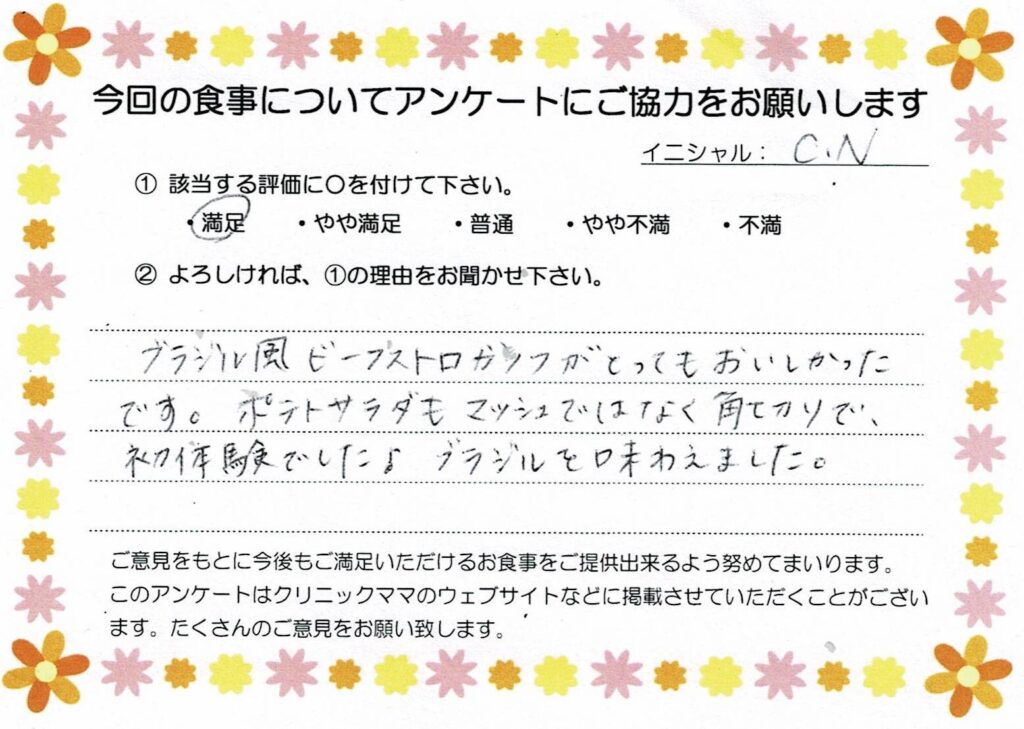 今回の食事についてアンケートにご協力をお願いします
イニシャル： C.N
① 該当する評価に○を付けて下さい。
・満足 ・やや満足 ・普通 ・やや不満 ・不満
② よろしければ、①の理由をお聞かせ下さい。
ブラジル風ビーフストロガノフがとってもおいしかった
です。ポテトサラダもマッシュではなく角切りで、
初体験でした♪ ブラジルを味わえました。
ご意見をもとに今後もご満足いただけるお食事をご提供出来るよう努めてまいります。
このアンケートはクリニックママのウェブサイトなどに掲載させていただくことがござい
ます。たくさんのご意見をお願い致します。